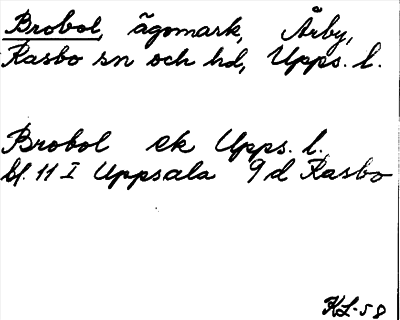 Brobol, ägomark, Årby,
Rasbo sn och hd, Upps. l.
Brobol ek Upps. l.
bl. 11 I Uppsala 9 d Rasbo
KL-58